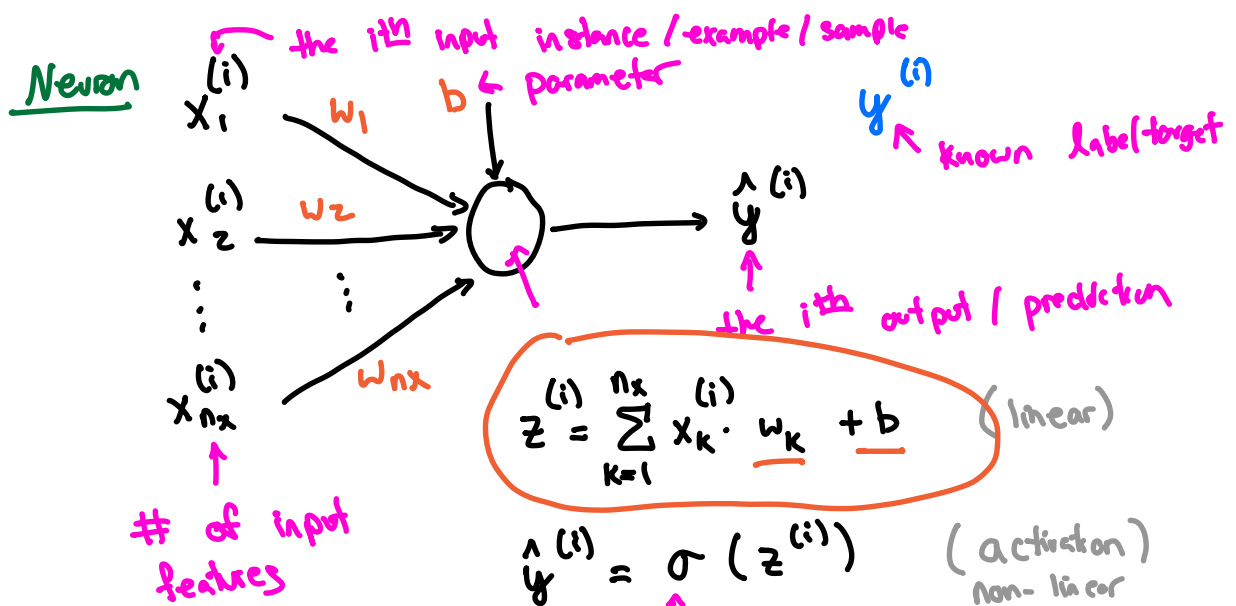 the ith input instance / example / sample
Neuron
x₁⁽ⁱ⁾
w₁
b
parameter
y⁽ⁱ⁾
known label/target
x₂⁽ⁱ⁾
w₂
ŷ⁽ⁱ⁾
⋮
⋮
the ith output / prediction
xₙₓ⁽ⁱ⁾
wₙₓ
z⁽ⁱ⁾ = Σₖ₌₁ⁿˣ xₖ⁽ⁱ⁾ · wₖ + b
(linear)
# of input
features
ŷ⁽ⁱ⁾ = σ(z⁽ⁱ⁾)
(activation)
non-linear